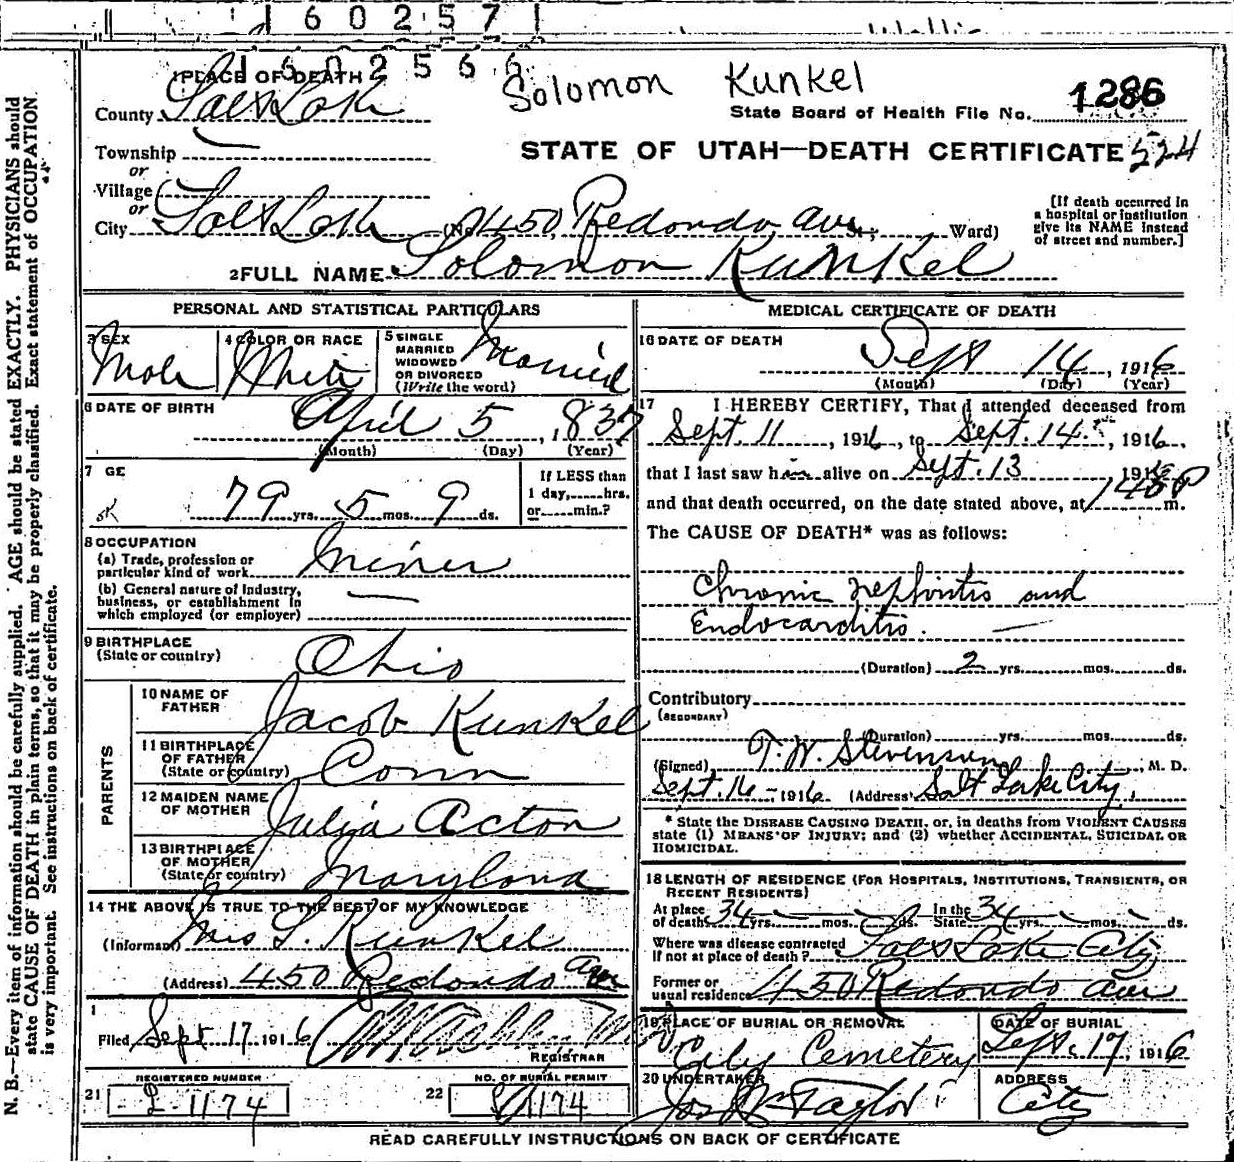 160257
1602566
Solomon Kunkel
1 PLACE OF DEATH
County Salt Lake
State Board of Health File No. 1286
Township
STATE OF UTAH—DEATH CERTIFICATE 524
or
Village
or
City Salt Lake (No. 450 Redondo Ave St.; Ward)
[If death occurred in
a hospital or institution
give its NAME instead
of street and number.]
2 FULL NAME Solomon Kunkel
PERSONAL AND STATISTICAL PARTICULARS
3 SEX
Male
4 COLOR OR RACE
White
5 SINGLE
MARRIED
WIDOWED
OR DIVORCED
(Write the word)
Married
6 DATE OF BIRTH
April 5, 1837
(Month) (Day) (Year)
7 GE
79 yrs. 5 mos. 9 ds.
If LESS than
1 day, hrs.
or min.?
OK
8 OCCUPATION
(a) Trade, profession or
particular kind of work Miner
(b) General nature of industry,
business, or establishment in
which employed (or employer)
9 BIRTHPLACE
(State or country)
Ohio
PARENTS
10 NAME OF
FATHER
Jacob Kunkel
11 BIRTHPLACE
OF FATHER
(State or country)
Conn
12 MAIDEN NAME
OF MOTHER
Julia Acton
13 BIRTHPLACE
OF MOTHER
(State or country)
Maryland
14 THE ABOVE IS TRUE TO THE BEST OF MY KNOWLEDGE
(Informant) Mrs S. Kunkel
(Address) 450 Redondo Ave
Filed Sept 17 1916
REGISTRAR
21 REGISTERED NUMBER
1174
22 NO. OF BURIAL PERMIT
1174
MEDICAL CERTIFICATE OF DEATH
16 DATE OF DEATH
Sept 14, 1916
(Month) (Day) (Year)
17 I HEREBY CERTIFY, That I attended deceased from
Sept. 11, 1916, to Sept. 14, 1916.
that I last saw him alive on Sept. 13 1916
and that death occurred, on the date stated above, at 145 P m.
The CAUSE OF DEATH* was as follows:
Chronic nephritis and
Endocarditis.
(Duration) 2 yrs. mos. ds.
Contributory
(SECONDARY)
(Duration) yrs. mos. ds.
(Signed) T. W. Stevenson, M. D.
Sept. 16 - 1916 (Address) Salt Lake City.
* State the DISEASE CAUSING DEATH, or, in deaths from VIOLENT CAUSES
state (1) MEANS OF INJURY; and (2) whether ACCIDENTAL, SUICIDAL OR
HOMICIDAL.
18 LENGTH OF RESIDENCE (FOR HOSPITALS, INSTITUTIONS, TRANSIENTS, OR
RECENT RESIDENTS)
At place
of death 34 yrs. mos. ds. In the
State 34 yrs. mos. ds.
Where was disease contracted
if not at place of death? Salt Lake City
Former or
usual residence 450 Redondo Ave
19 PLACE OF BURIAL OR REMOVAL
City Cemetery
DATE OF BURIAL
Sept. 17, 1916
20 UNDERTAKER
Jos Wm Taylor
ADDRESS
City
READ CAREFULLY INSTRUCTIONS ON BACK OF CERTIFICATE
N. B.—Every item of information should be carefully supplied. AGE should be stated EXACTLY. PHYSICIANS should
state CAUSE OF DEATH in plain terms, so that it may be properly classified. Exact statement of OCCUPATION
is very important. See instructions on back of certificate.